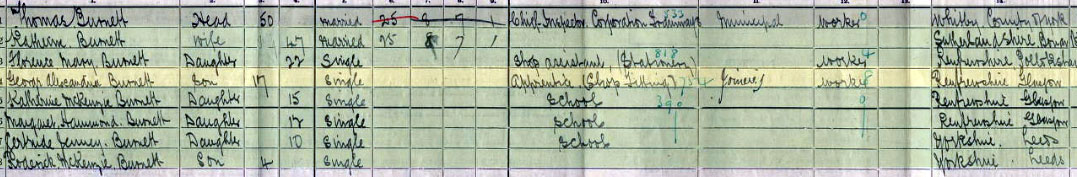 Thomas Burnett Head 50 married 25 8 7 1 Chief Inspector Corporation Tramways 835 Municipal Worker 0 Whitby County York
Katherine Burnett Wife 47 Married 25 8 7 1 Sutherlandshire Bonar
Florence Mary Burnett Daughter 22 Single Shop assistant (Stationery) 818 Worker 4 Renfrewshire
George Alexander Burnett Son 17 Single Apprentice (Shop Fitting) Joinery Worker Renfrewshire Glasgow
Katherine McKenzie Burnett Daughter 15 Single School 390 Renfrewshire Glasgow
Margaret Hammond Burnett Daughter 12 Single School Renfrewshire Glasgow
Gertrude Burnett Daughter 10 Single School Yorkshire. Leeds
Roderick McKenzie Burnett Son 4 Single Yorkshire. Leeds